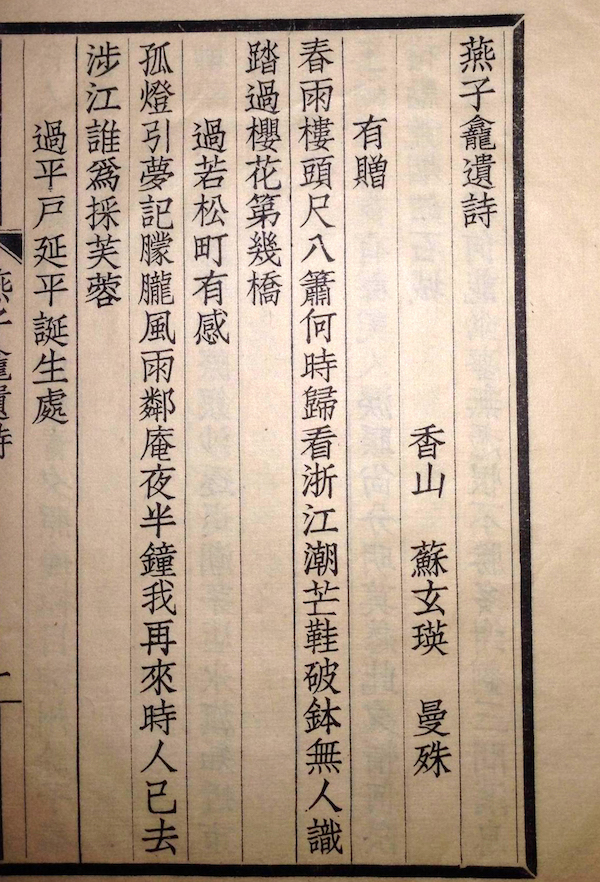 燕子龕遺詩
香山　蘇玄瑛　曼殊
有贈
春雨樓頭尺八簫何時歸看浙江潮芒鞋破鉢無人識
踏過櫻花第幾橋
過若松町有感
孤燈引夢記朦朧風雨鄰庵夜半鐘我再來時人已去
涉江誰爲採芙蓉
過平戶延平誕生處
燕子龕遺詩
一